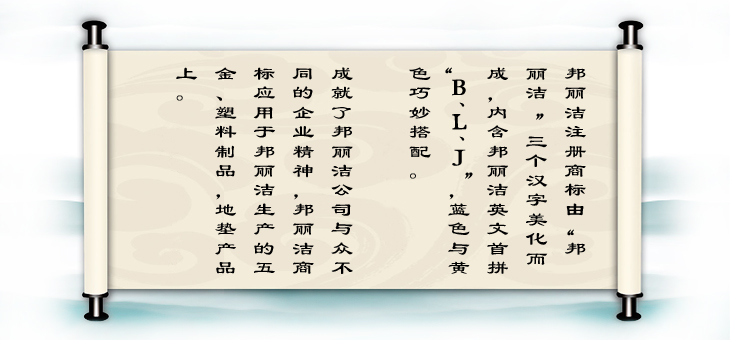 邦丽洁注册商标由“邦
丽洁”三个汉字美化而
成，内含邦丽洁英文首拼
“B、L、J”，蓝色与黄
色巧妙搭配。
成就了邦丽洁公司与众不
同的企业精神，邦丽洁商
标应用于邦丽洁生产的五
金、塑料制品，地垫产品
上。